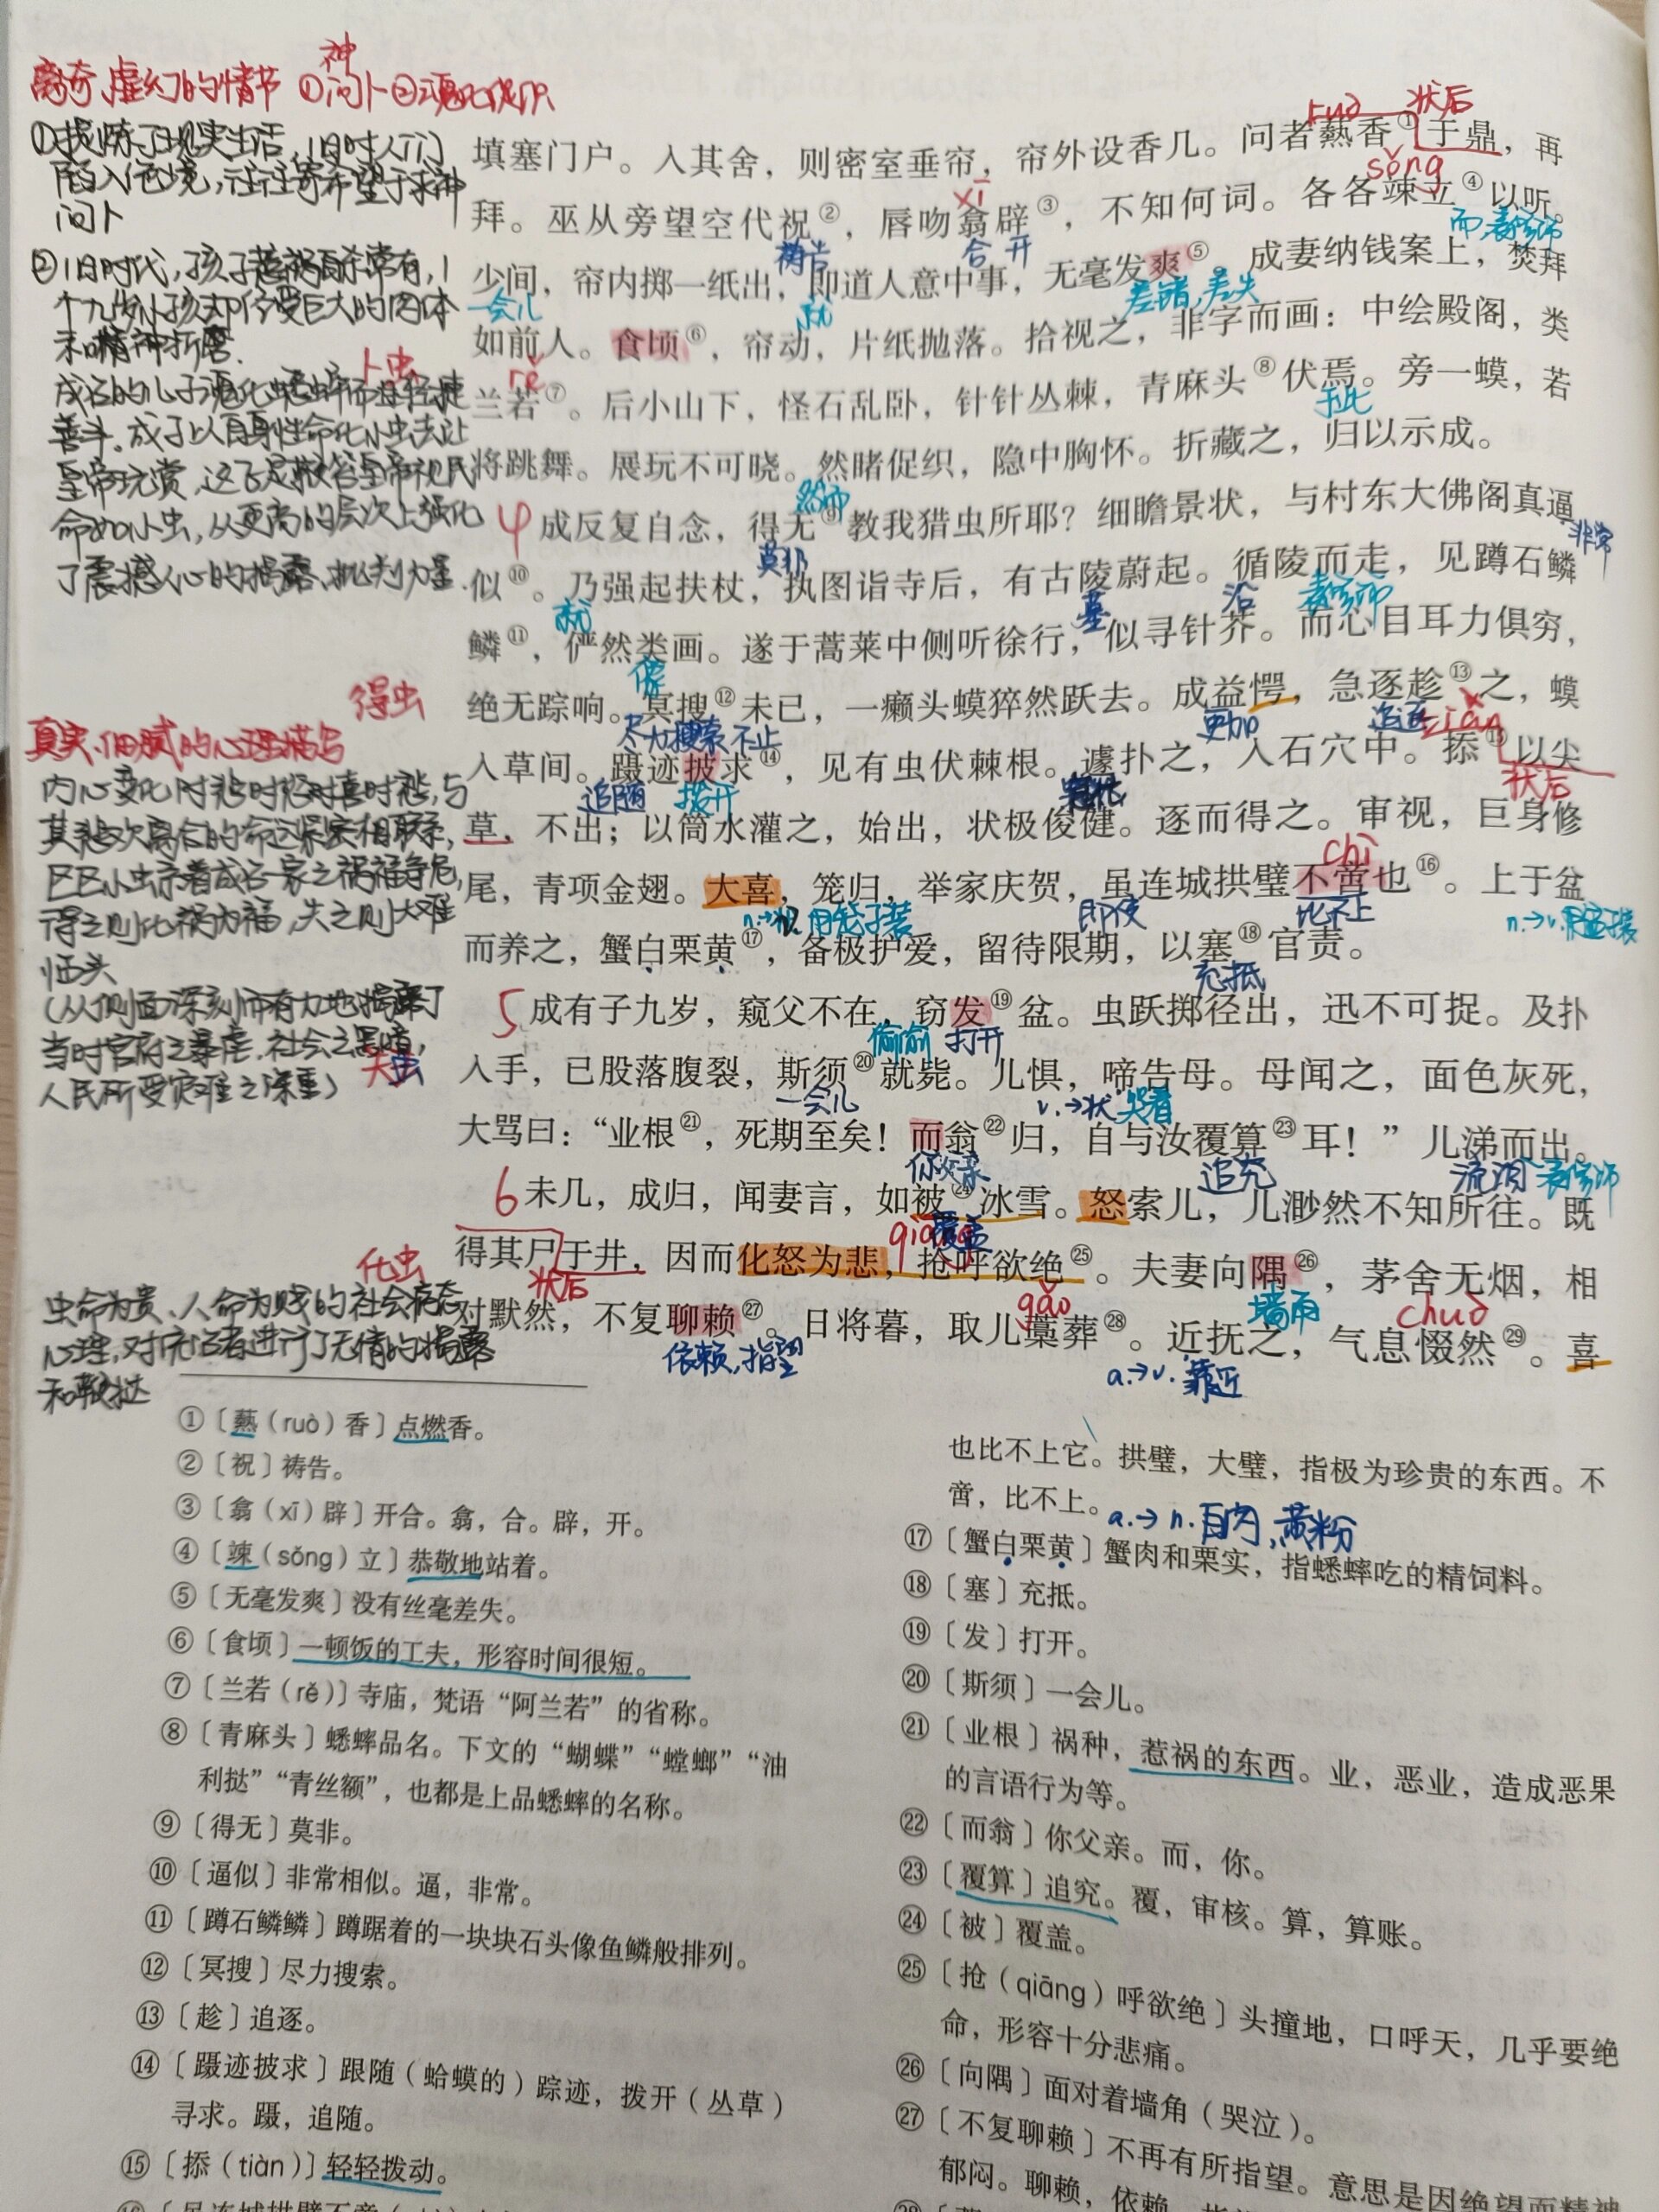 离奇、虚幻的情节 ①问神卜②魂化促织
①提炼了现实生活,旧时人们
陷入绝境,往往寄希望于求神
问卜
②旧时代,孩子惹祸而杀常有,1
个九岁小孩却传受巨大的肉体
和精神折磨.
卜虫
成名的儿子魂化蟋蟀而且轻捷
善斗.成子以自身性命化小虫去让
皇帝玩赏,这
皇帝视民
命如小虫,从更高的层次上强化
了震撼人心的揭露、批判力量.
得虫
真实、细腻的心理描写
内心变化时悲时怒时喜时愁,与
其悲欢离合的命运紧密相联系,
区区小虫系着成名一家之祸福争危,
得之则化祸为福,失之则大难
临头
(从侧面深刻而有力地揭露了
当时官府之暴虐.社会之黑暗,
失虫
人民所受灾难之深重)
化虫
虫命为贵、人命为贱的社会病态
心理,对统治者进行了无情的揭露
和鞭挞
ruò 状后
填塞门户。入其舍,则密室垂帘,帘外设香几。问者爇香①于鼎,再
xī sǒng
拜。巫从旁望空代祝②,唇吻翕辟③,不知何词。各各竦立④以听。
祷告 合 开 而,表修饰
少间,帘内掷一纸出,即道人意中事,无毫发爽⑤。成妻纳钱案上,焚拜
一会儿 就 差错,差失
如前人。食顷⑥,帘动,片纸抛落。拾视之,非字而画:中绘殿阁,类
rě
兰若⑦。后小山下,怪石乱卧,针针丛棘,青麻头⑧伏焉。旁一蟆,若
于此
将跳舞。展玩不可晓。然睹促织,隐中胸怀。折藏之,归以示成。
然而
4 成反复自念,得无⑨教我猎虫所耶?细瞻景状,与村东大佛阁真逼
莫非 非常
似⑩。乃强起扶杖,执图诣寺后,有古陵蔚起。循陵而走,见蹲石鳞
就 墓 沿 表修饰
鳞⑪,俨然类画。遂于蒿莱中侧听徐行,似寻针芥。而心目耳力俱穷,
像
绝无踪响。冥搜⑫未已,一癞头蟆猝然跃去。成益愕,急逐趁⑬之,蟆
尽力搜索 不止 更加 追逐 tiàn
入草间。蹑迹披求⑭,见有虫伏棘根。遽扑之,入石穴中。掭⑮以尖
追随 拨开 状后
草,不出;以筒水灌之,始出,状极俊健。逐而得之。审视,巨身修
chì
尾,青项金翅。大喜,笼归,举家庆贺,虽连城拱璧不啻也⑯。上于盆
n.→状.用笼子装 即使 比不上 n.→v.用盆装
而养之,蟹白栗黄⑰,备极护爱,留待限期,以塞⑱官责。
充抵
5 成有子九岁,窥父不在,窃发⑲盆。虫跃掷径出,迅不可捉。及扑
偷偷 打开
入手,已股落腹裂,斯须⑳就毙。儿惧,啼告母。母闻之,面色灰死,
一会儿 v.→状 哭着
大骂曰:“业根㉑,死期至矣!而翁㉒归,自与汝覆算㉓耳!”儿涕而出。
你父亲 追究 流泪 表修饰
6 未几,成归,闻妻言,如被㉔冰雪。怒索儿,儿渺然不知所往。既
覆盖 qiāng
得其尸于井,因而化怒为悲,抢呼欲绝㉕。夫妻向隅㉖,茅舍无烟,相
状后 gǎo 墙角 chuò
对默然,不复聊赖㉗。日将暮,取儿藁葬㉘。近抚之,气息惙然㉙。喜
依赖,指望 a.→v.靠近
①〔爇(ruò)香〕点燃香。
②〔祝〕祷告。
③〔翕(xī)辟〕开合。翕,合。辟,开。
④〔竦(sǒng)立〕恭敬地站着。
⑤〔无毫发爽〕没有丝毫差失。
⑥〔食顷〕一顿饭的工夫,形容时间很短。
⑦〔兰若(rě)〕寺庙,梵语“阿兰若”的省称。
⑧〔青麻头〕蟋蟀品名。下文的“蝴蝶”“螳螂”“油
利挞”“青丝额”,也都是上品蟋蟀的名称。
⑨〔得无〕莫非。
⑩〔逼似〕非常相似。逼,非常。
⑪〔蹲石鳞鳞〕蹲踞着的一块块石头像鱼鳞般排列。
⑫〔冥搜〕尽力搜索。
⑬〔趁〕追逐。
⑭〔蹑迹披求〕跟随(蛤蟆的)踪迹,拨开(丛草)
寻求。蹑,追随。
⑮〔掭(tiàn)〕轻轻拨动。
也比不上它。拱璧,大璧,指极为珍贵的东西。不
啻,比不上。
a.→n.白肉,黄粉
⑰〔蟹白栗黄〕蟹肉和栗实,指蟋蟀吃的精饲料。
⑱〔塞〕充抵。
⑲〔发〕打开。
⑳〔斯须〕一会儿。
㉑〔业根〕祸种,惹祸的东西。业,恶业,造成恶果
的言语行为等。
㉒〔而翁〕你父亲。而,你。
㉓〔覆算〕追究。覆,审核。算,算账。
㉔〔被〕覆盖。
㉕〔抢(qiāng)呼欲绝〕头撞地,口呼天,几乎要绝
命,形容十分悲痛。
㉖〔向隅〕面对着墙角(哭泣)。
㉗〔不复聊赖〕不再有所指望。意思是因绝望而精神
郁闷。聊赖,依赖、指